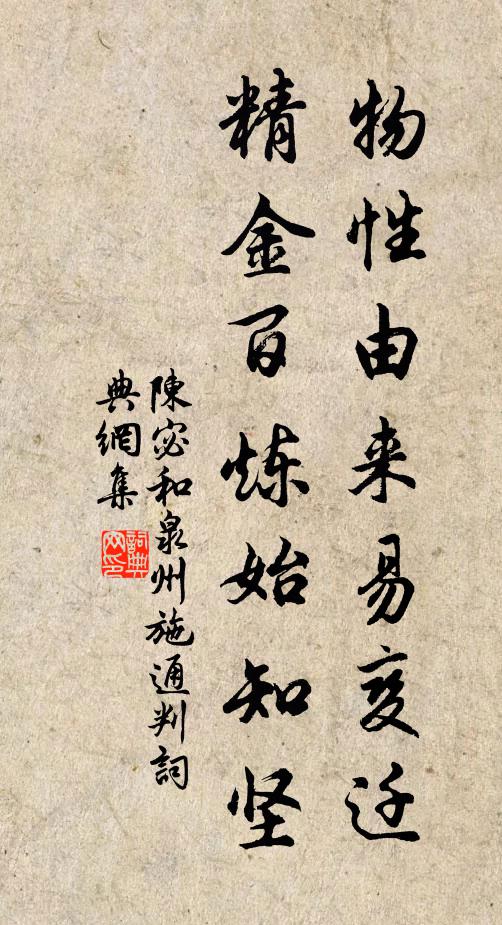 物性由来易变迁
精金百炼始知坚
陳宓和泉州施通判詞
典網集
詞典
网印